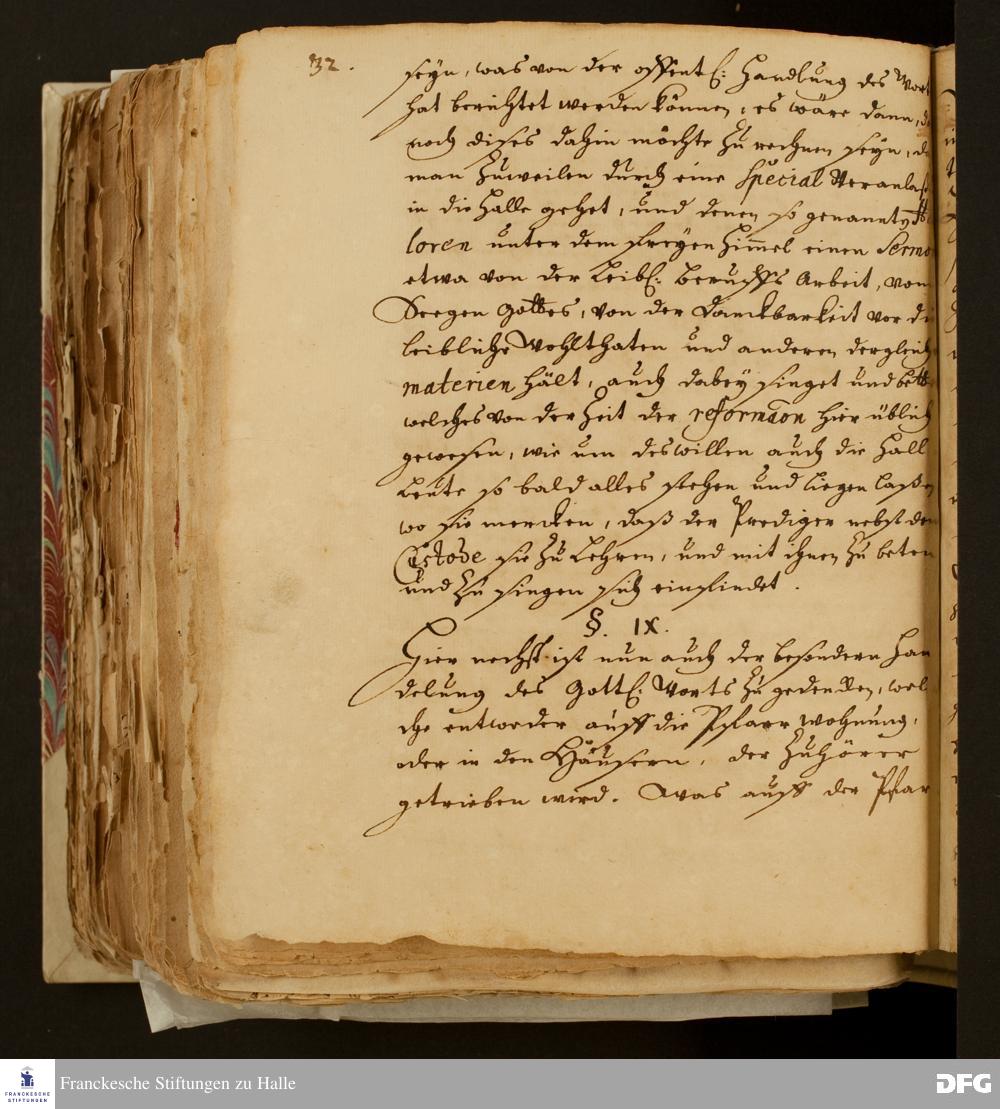 32.
seyn, was von der offentl: Handlung des Wort
hat berichtet werden können, es wäre dann, d
noch dises dahin möchte zu rechnen seyn, d
man zuweilen durch eine Special Veranlaß
in die Halle gehet, und denen so genannten
loren unter dem freyen Himmel einen Sermo
etwa von der Leibl: beruffs Arbeit, vom
Seegen Gottes, von der Danckbarkeit vor di
leibliche Wohlthaten und anderen dergleich
materien hält, auch dabey singet und bett
welches von der Zeit der reformaon hier üblich
gewesen, wie um deswillen auch die Hall
Leute so bald alles stehen und liegen laßen
wo sie mercken, daß der Prediger nebst dem
Custode sie zu Lehren, und mit ihnen zu beten
und zu singen sich einfindet.
§. IX.
Hier nechst ist nun auch der besondern Han
delung des Gottl: Worts zu gedencken, wel
che entweder auff die Pfarr wohnung,
oder in den Häusern, der Zuhörer
getrieben wird. Was auff der Pfar
Franckesche Stiftungen zu Halle
FRANCKESCHE
STIFTUNGEN
DFG